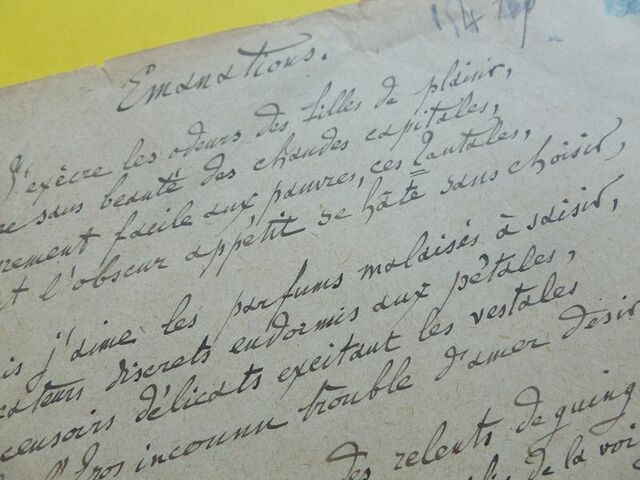 Emanations.
J'exècre les odeurs des filles de plaisir,
sans beauté des chaudes capitales,
facile aux pauvres, ces Tantales,
l'obscur appétit se hâte sans choisir,
j'aime les parfums malaisés à saisir,
discrets endormis aux pétales,
délicats excitant les vestales
inconnu trouble d'amer désir
des relents de
de la